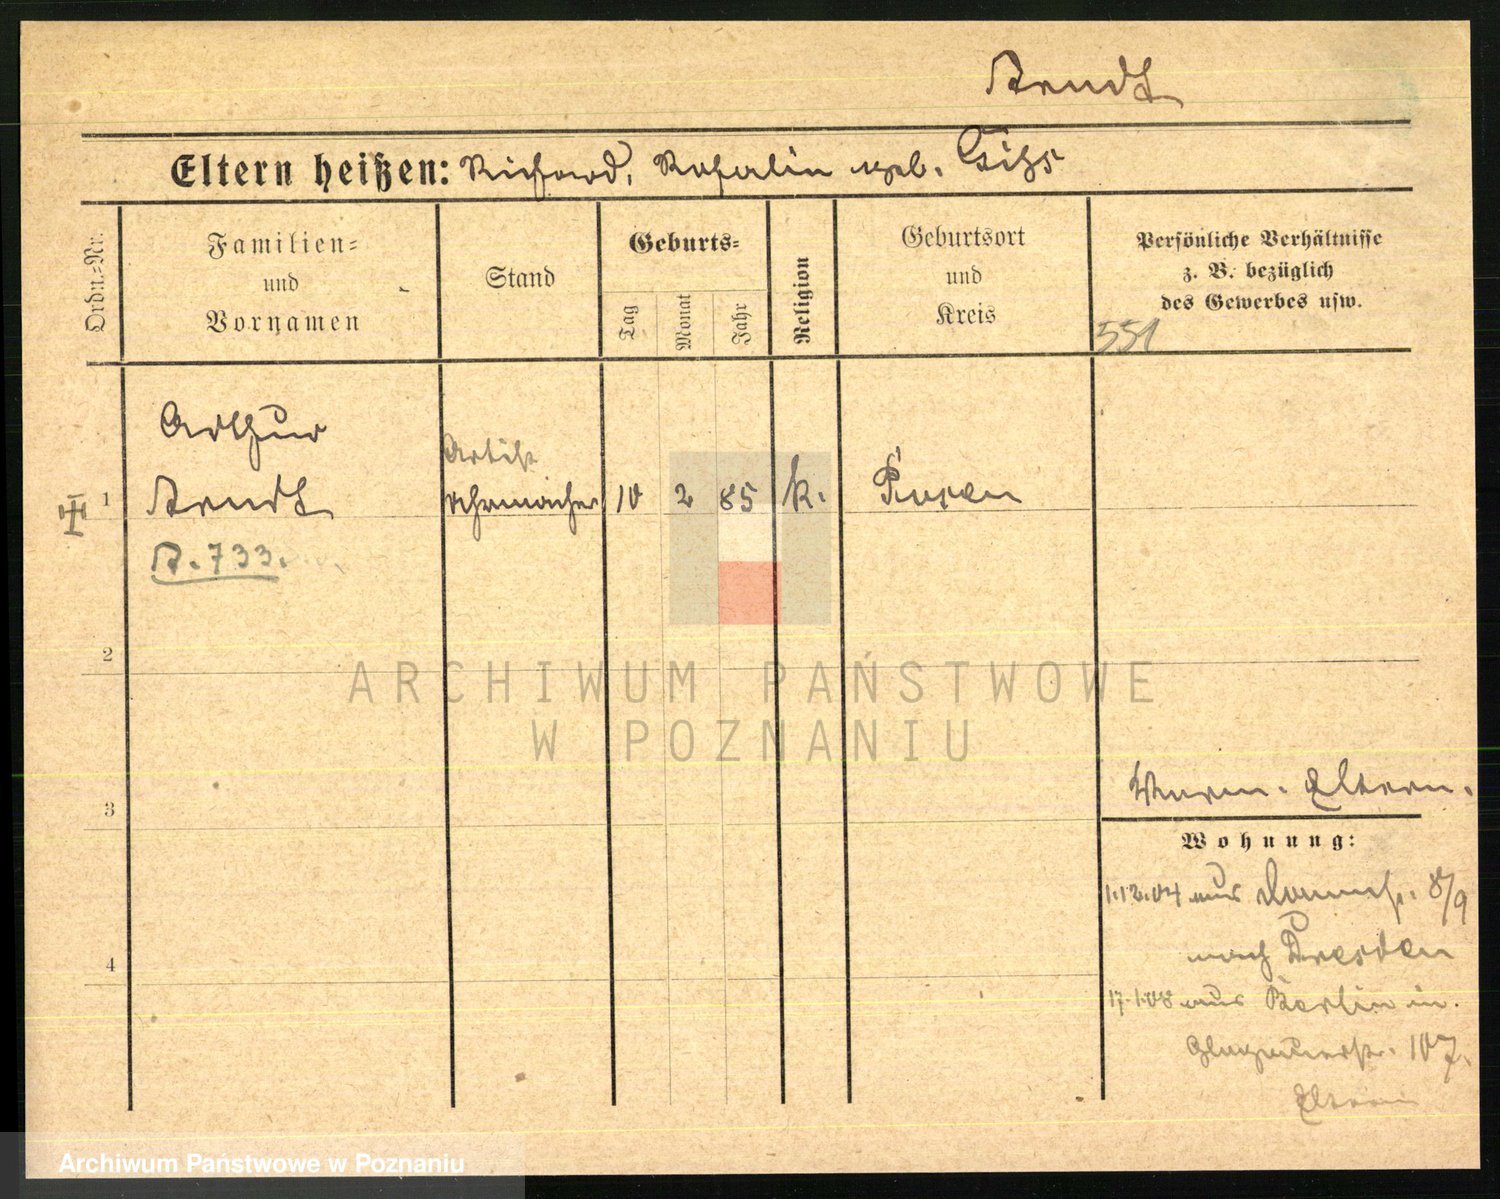 Arndt
Eltern heißen: Richard, Rosalin geb.
Ordn.=Nr.
Familien=
und
Vornamen
Stand
Geburts=
Tag
Monat
Jahr
Religion
Geburtsort
und
Kreis
Persönliche Verhältnisse
z. B. bezüglich
des Gewerbes usw.
551
Arthur
Artist
1 Arndt Uhrmacher 10 2 85 k. Posen
A. 733.
2
3
4
ARCHIWUM PAŃSTWOWE
W POZNANIU
Eltern.
Wohnung:
1.12.04 aus 8/9
nach Dresden
17.1.08 aus Berlin in
Glogauerstr. 107.
Eltern
Archiwum Państwowe w Poznaniu